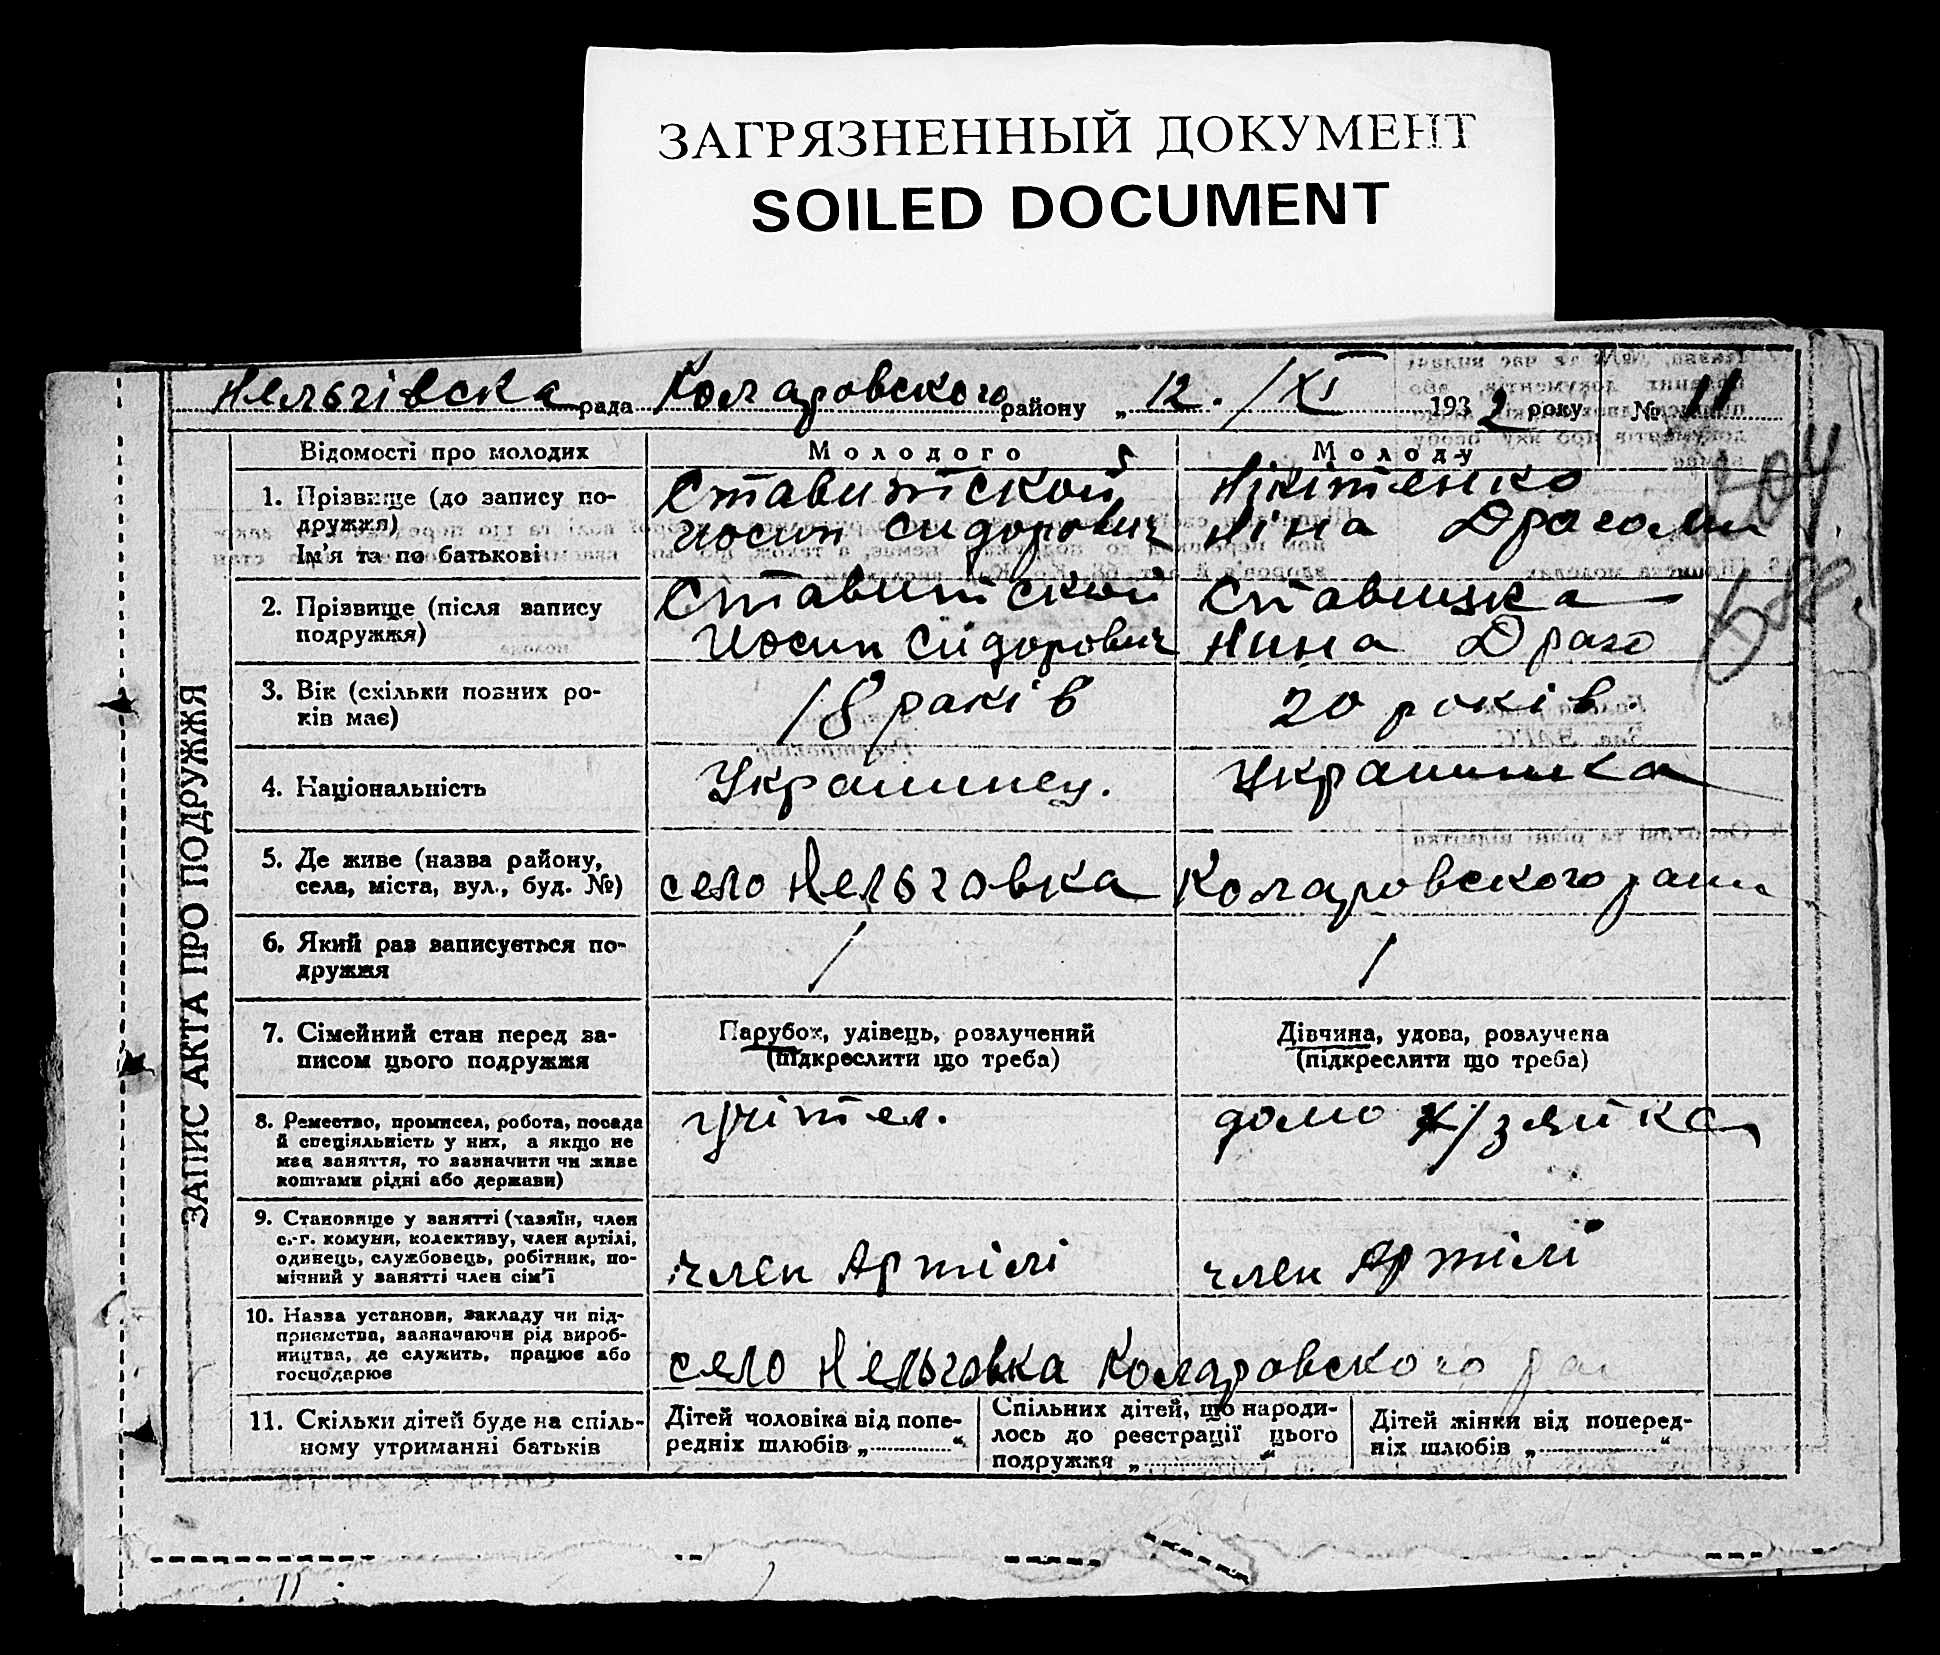 ЗАГРЯЗНЕННЫЙ ДОКУМЕНТ
SOILED DOCUMENT
Нельгівска рада Коларовского району „ 12 . /XI 1932 року № 11
ЗАПИС АКТА ПРО ПОДРУЖЖЯ
Відомості про молодих
Молодого
Молоду
1. Прізвище (до запису по-
дружжя)
Ім'я та по батькові
Ставитской
Иосип Сидорович
Нікітенко
Ніна Драгоми
204
588
2. Прізвище (після запису
подружжя)
Ставитский
Иосип Сидорович
Ставицка
Нина Драго
3. Вік (скільки повних ро-
ків має)
18 раків
20 років.
4. Національність
Украинец.
Украинка
5. Де живе (назва району,
села, міста, вул., буд. №)
село Нельговка Коларовского раин
6. Який раз записується по-
дружжя
/
/
7. Сімейний стан перед за-
писом цього подружжя
Парубок, удівець, розлучений
(підкреслити що треба)
Дівчина, удова, розлучена
(підкреслити що треба)
8. Ремество, промисел, робота, посада
й спеціяльність у них, а якщо не
має заняття, то зазначити чи живе
коштами рідні або держави)
учітел.
домо х/зяйка
9. Становище у занятті (хазяїн, член
с.-г. комуни, колективу, член артілі,
одинець, службовець, робітник, по-
мічний у занятті член сім'ї
член Артілі
член Артілі
10. Назва установи, закладу чи під-
приємства, зазначаючи рід вироб-
ництва, де служить, працює або
господарює
село Нельговка Коларовского ра
11. Скільки дітей буде на спіль-
ному утриманні батьків
Дітей чоловіка від попе-
редніх шлюбів „ “
Спільних дітей, що народи-
лось до реєстрації цього
подружжя „ “
Дітей жінки від поперед-
ніх шлюбів „ “
11